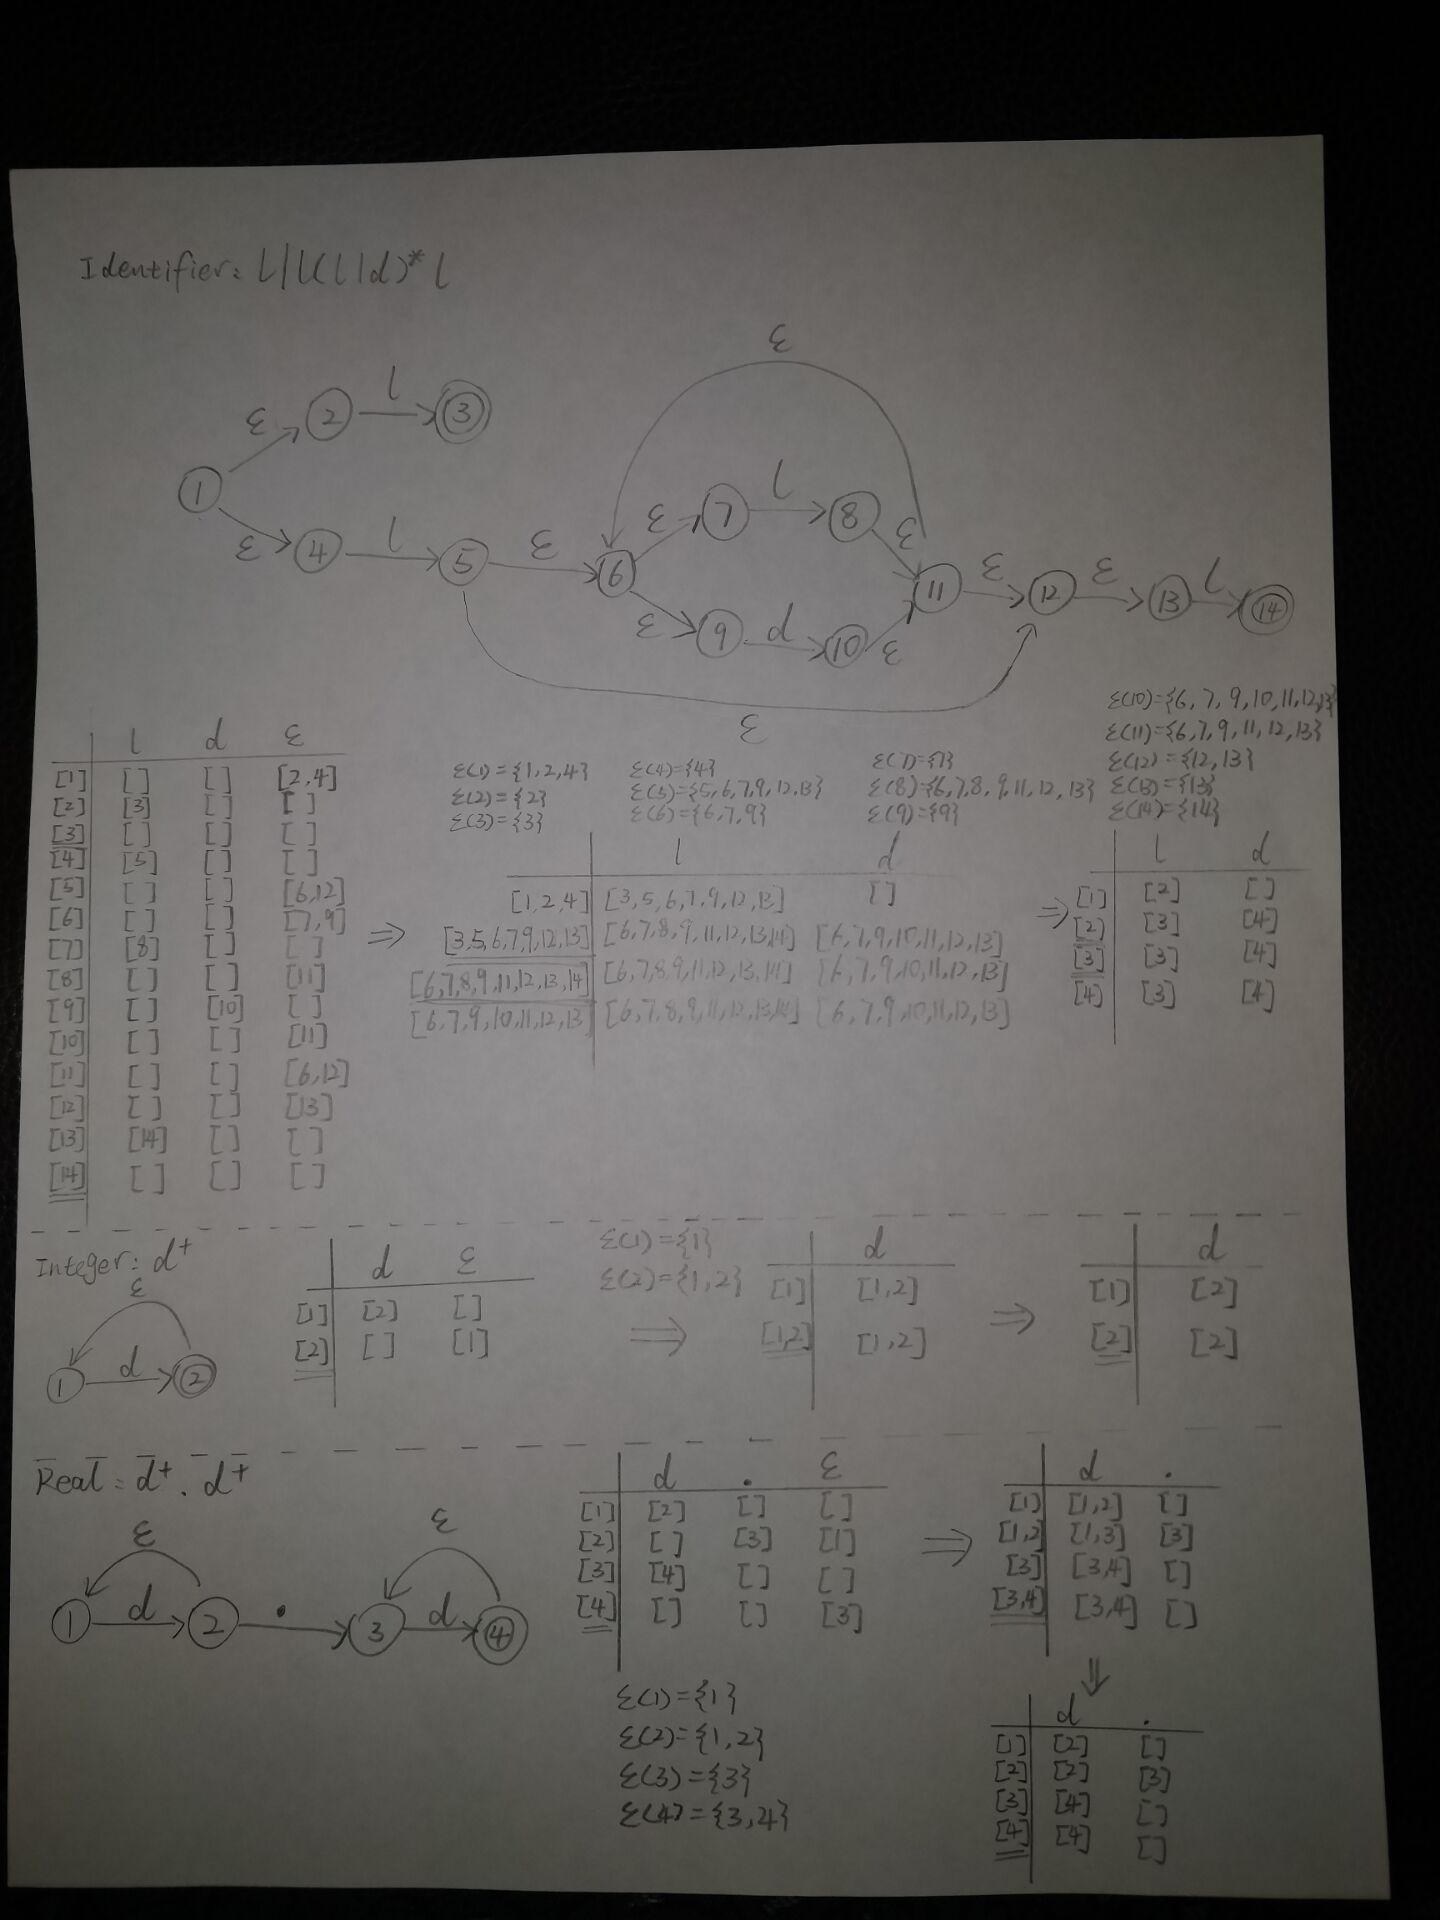 Identifier: l|l(l|d)* l
ε
l
ε 2 3
1
ε 4 l 5 ε 6 ε 7 l 8 ε 11 ε 12 ε 13 l 14
ε 9 d 10 ε
ε
l d ε
[1] [ ] [ ] [2,4]
[2] [3] [ ] [ ]
[3] [ ] [ ] [ ]
[4] [5] [ ] [ ]
[5] [ ] [ ] [6,12]
[6] [ ] [ ] [7,9]
[7] [8] [ ] [ ]
[8] [ ] [ ] [11]
[9] [ ] [10] [ ]
[10] [ ] [ ] [11]
[11] [ ] [ ] [6,12]
[12] [ ] [ ] [13]
[13] [14] [ ] [ ]
[14] [ ] [ ] [ ]
⇒
ε(1)={1,2,4}
ε(2)={2}
ε(3)={3}
ε(4)={4}
ε(5)={5,6,7,9,12,13}
ε(6)={6,7,9}
ε(7)={7}
ε(8)={6,7,8,9,11,12,13}
ε(9)={9}
ε(10)={6,7,9,10,11,12,13}
ε(11)={6,7,9,11,12,13}
ε(12)={12,13}
ε(13)={13}
ε(14)={14}
l d
[1,2,4] [3,5,6,7,9,12,13] [ ]
[3,5,6,7,9,12,13] [6,7,8,9,11,12,13,14] [6,7,9,10,11,12,13]
[6,7,8,9,11,12,13,14] [6,7,8,9,11,12,13,14] [6,7,9,10,11,12,13]
[6,7,9,10,11,12,13] [6,7,8,9,11,12,13,14] [6,7,9,10,11,12,13]
⇒
l d
[1] [2] [ ]
[2] [3] [4]
[3] [3] [4]
[4] [3] [4]
Integer: d+
ε
1 d 2
d ε
[1] [2] [ ]
[2] [ ] [1]
ε(1)={1}
ε(2)={1,2}
⇒
d
[1] [1,2]
[1,2] [1,2]
⇒
d
[1] [2]
[2] [2]
Real: d+ . d+
ε ε
1 d 2 . 3 d 4
d . ε
[1] [2] [ ] [ ]
[2] [ ] [3] [1]
[3] [4] [ ] [ ]
[4] [ ] [ ] [3]
ε(1)={1}
ε(2)={1,2}
ε(3)={3}
ε(4)={3,4}
⇒
d .
[1] [1,2] [ ]
[1,2] [1,3] [3]
[3] [3,4] [ ]
[3,4] [3,4] [ ]
⇓
d .
[1] [2] [ ]
[2] [2] [3]
[3] [4] [ ]
[4] [4] [ ]